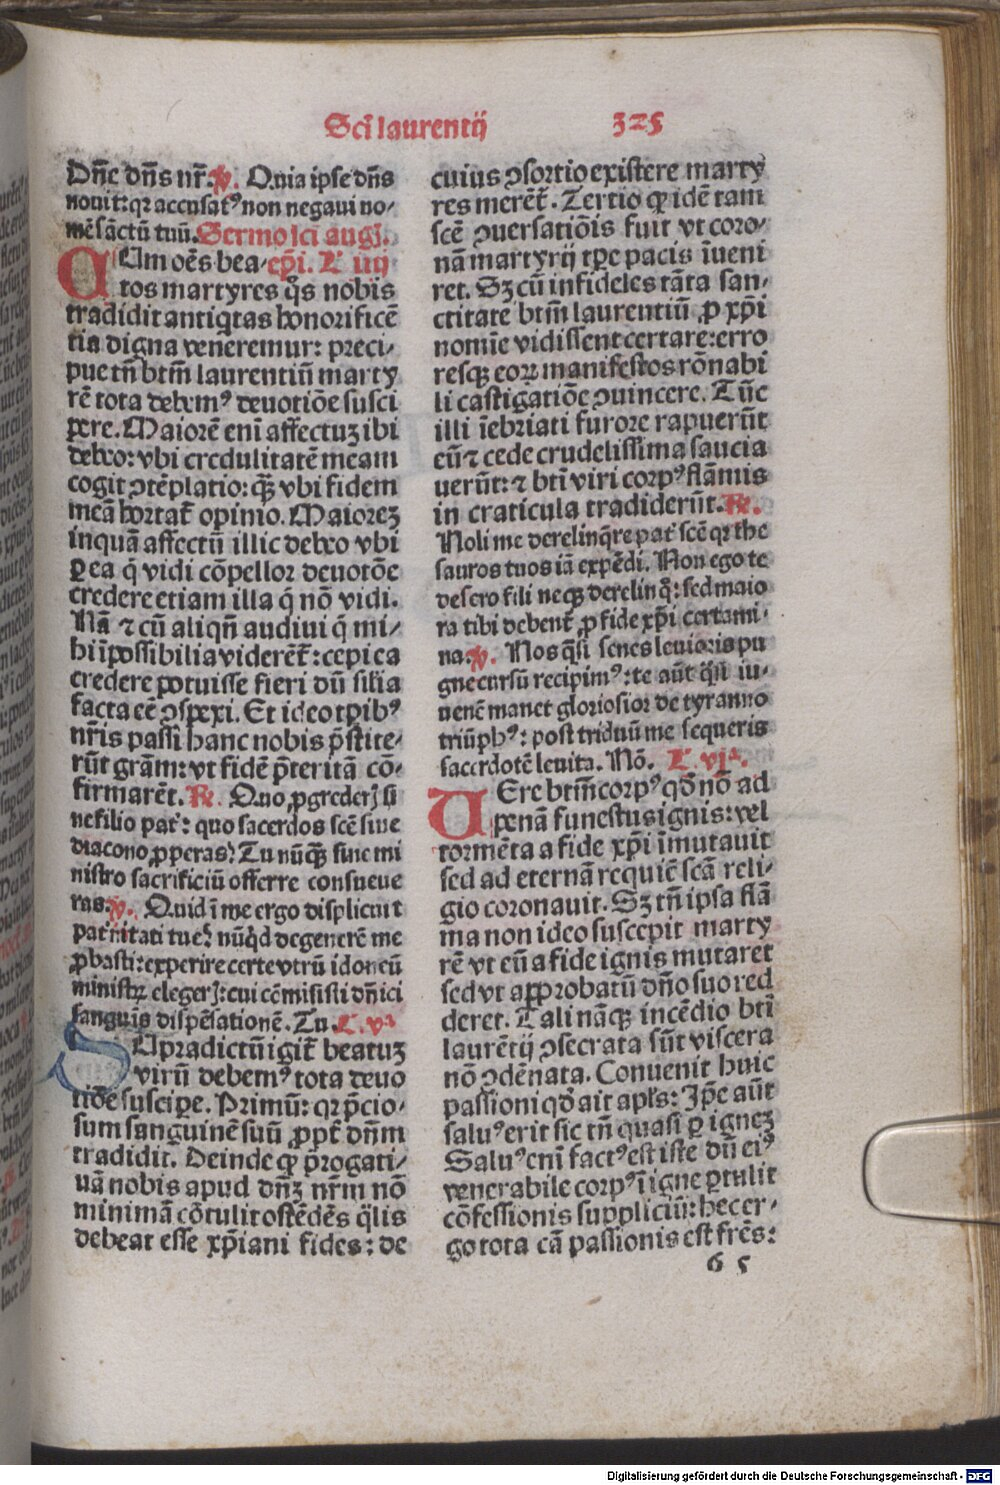 Scī laurentij 325
Dn̄e dn̄s nr̄. ℣. Quia ipse dn̄s
nouit: qꝛ accusatꝰ non negaui no-
mē sanctū tuū. Sermo sci augꝭ.
CUm oēs bea- epī. L iiij
tos martyres qͦs nobis
tradidit antiqͥtas honorificē
tia digna veneremur: preci-
pue tn̄ btm̄ laurentiū marty
rē tota debemꝰ deuotiōe susci
pere. Maiorē enī affectuꝫ ibi
debeo: vbi credulitatē meam
cogit ꝯtēplatio: qꝫ vbi fidem
meā hortat̄ opinio. Maiorez
inquā affectū illic debeo vbi
ꝑ ea q̄ vidi cōpellor deuotōe
credere etiam illa q̄ nō vidi.
Nā ⁊ cū aliqn̄ audiui q̄ mi-
hi īpossibilia viderēt̄: cepi ea
credere potuisse fieri dū silia
facta eē ꝯspexi. Et ideo tꝑibꝰ
nr̄is passi hanc nobis p̄stite-
rūt grām: vt fidē p̄teritā cō-
firmarēt. ℟. Quo ꝓgrederꝭ si
ne filio pat̄: quo sacerdos scē sine
diacono ꝓperas? Tu nūqꝫ sine mi
nistro sacrificiū offerre consueue
ras. ℣. Quid ī me ergo displicuit
pat̄nitati tue? nūqͥd degenerē me
ꝓbasti: experire certe vtrū idoneū
ministꝝ elegerꝭ: cui cōmisisti dn̄ici
sanguis dispēsationē. Tu. L. vᵃ
SUpradictū igit̄ beatuꝫ
virū debemꝰ tota deuo
tiōe suscipe. Primū: qꝛ p̄cio-
sum sanguinē suū ꝓpt̄ dn̄m
tradidit. Deinde ꝙ p̄rogati-
uā nobis apud dn̄ꝫ nr̄m nō
minimā cōtulit ostēdēs q̄lis
debeat esse xp̄iani fides: de
cuius ꝯsortio existere marty
res merēt̄. Tertio ꝙ idē tam
scē ꝯuersatiōis fuit vt coro-
nā martyrij tꝑe pacis īueni
ret. Sꝫ cū infideles tāta san-
ctitate btm̄ laurentiū ꝓ xp̄i
nomīe vidissent certare: erro
resqꝫ eoꝝ manifestos rōnabi
li castigatiōe ꝯuincere. Tūc
illi īebriati furore rapuerūt
eū ⁊ cede crudelissima saucia
uerūt: ⁊ bti viri corpꝰ flāmis
in craticula tradiderūt. ℟.
Noli me derelinq̄re pat̄ scē qꝛ the
sauros tuos iā expēdi. Non ego te
desero fili neqꝫ derelinqͦ: sed maio
ra tibi debent̄ ꝓ fide xp̄i certami-
na. ℣. Nos q̄si senes leuioris pu
gne cursū recipimꝰ: te aūt q̄si iu-
uenē manet gloriosior de tyranno
triūphꝰ: post triduū me sequeris
sacerdotē leuita. Nō. L. vjᵃ.
VEre btm̄ corpꝰ qd̄ nō ad
penā funestus ignis: vel
tormēta a fide xp̄i īmutauit
sed ad eternā requiē scā reli-
gio coronauit. Sꝫ tn̄ ipsa flā
ma non ideo suscepit marty
rē vt eū a fide ignis mutaret
sed vt approbatū dn̄o suo red
deret. Tali nāqꝫ incēdio bti
laurētij ꝯsecrata sūt viscera
nō ꝯdēnata. Conuenit huic
passioni qd̄ ait apl̄s: Ip̄e aūt
saluꝰ erit sic tn̄ quasi ꝑ ignez
Saluꝰ enī factꝰ est iste dū eiꝰ
venerabile corpꝰ ī igne ꝑtulit
cōfessionis suppliciū: hec er-
go tota cā passionis est frēs:
6 5
Digitalisierung gefördert durch die Deutsche Forschungsgemeinschaft - DFG